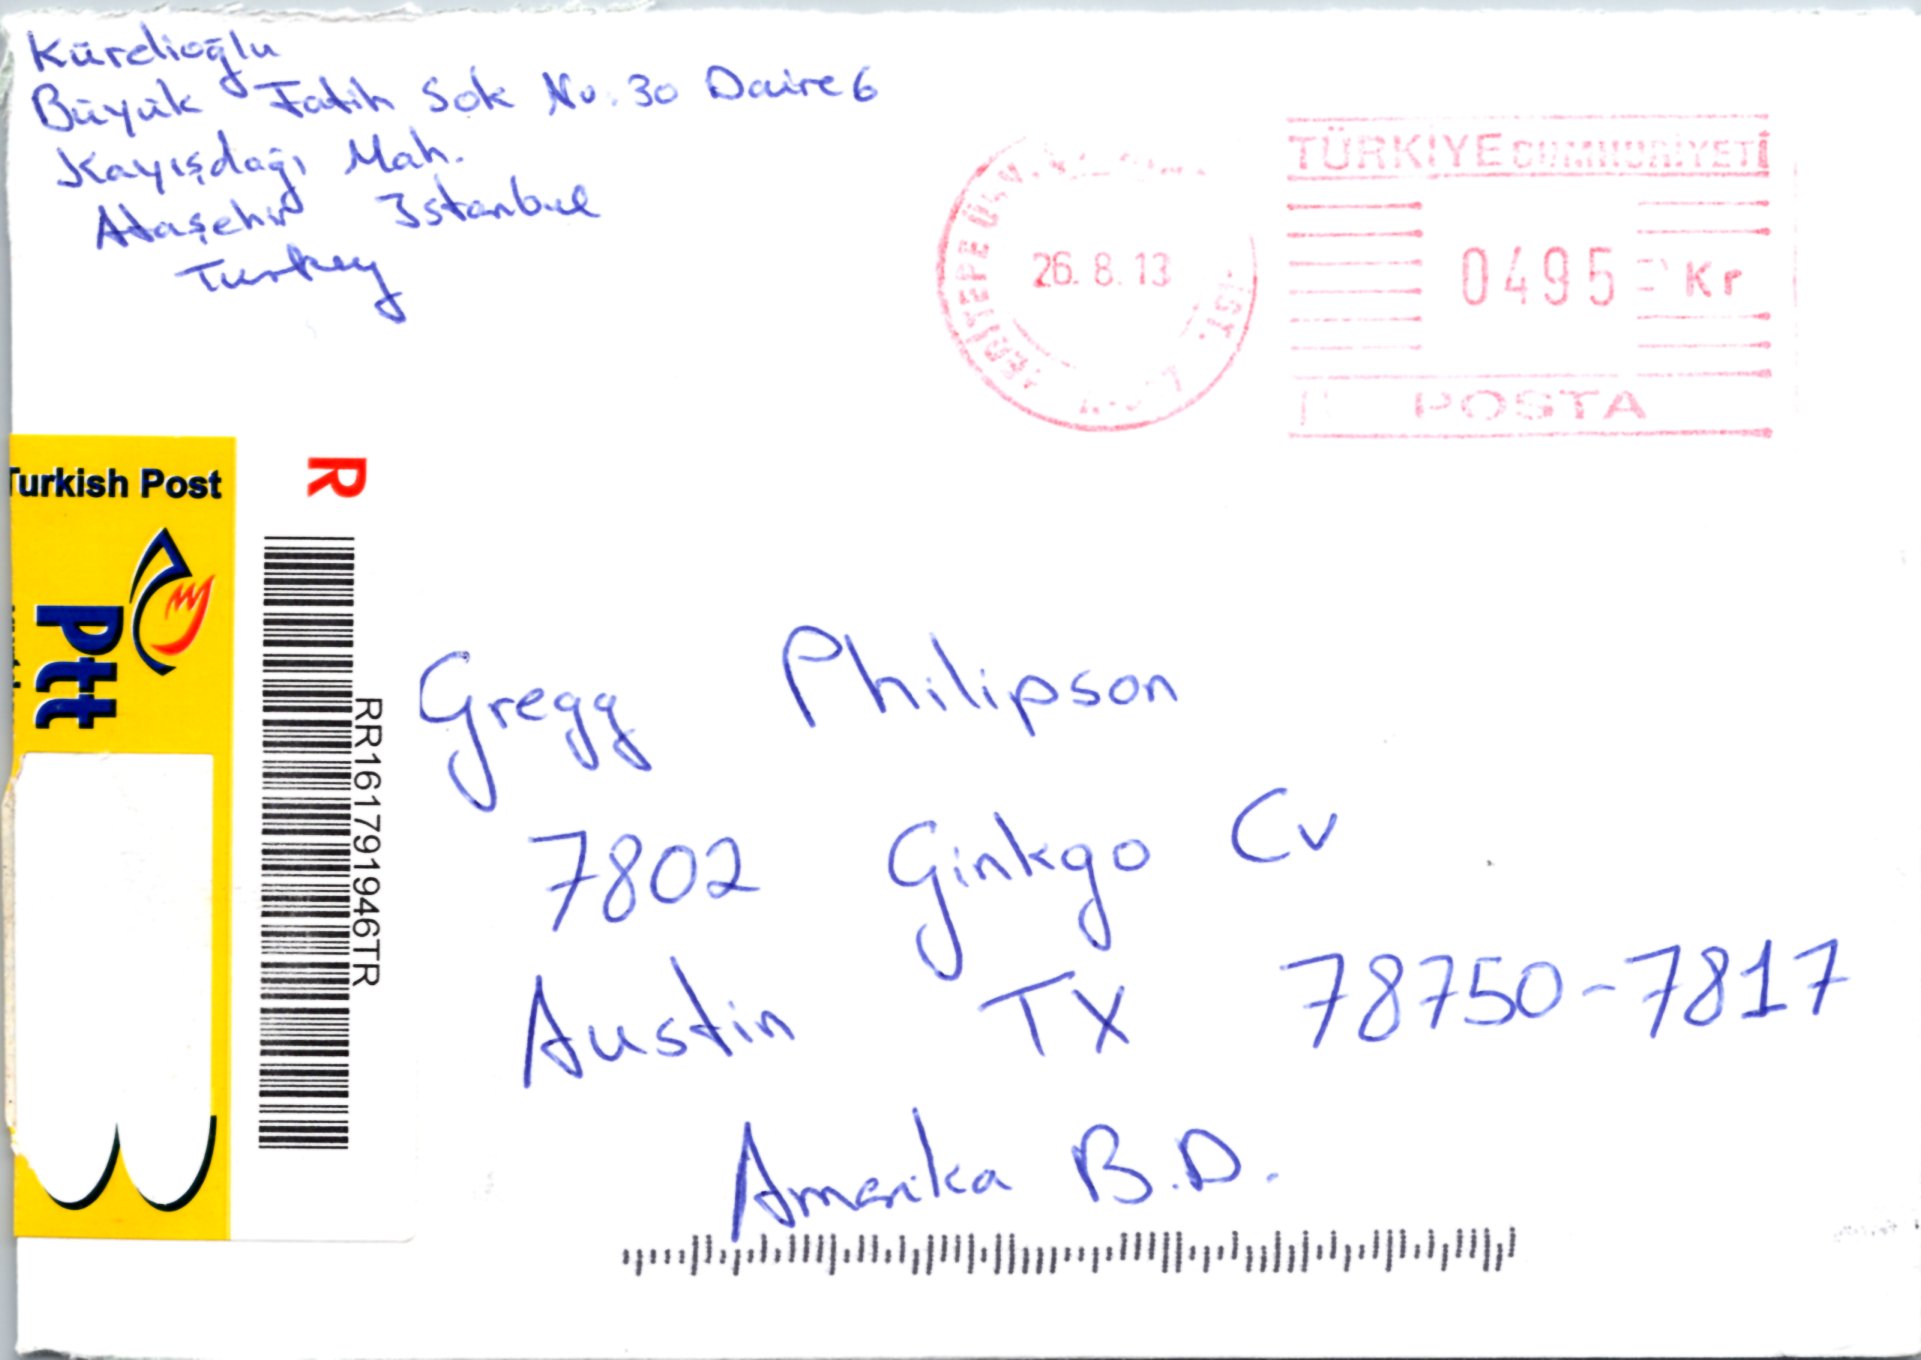 Kürdioğlu
Büyük Fatih Sok No. 30 Daire 6
Kayışdağı Mah.
Ataşehir Istanbul
Turkey
26. 8. 13
İST.
TÜRKİYE CUMHURİYETİ
0495 Kr
POSTA
Turkish Post
Ptt
R
RR161791946TR
Gregg Philipson
7802 Ginkgo Cv
Austin TX 78750-7817
Amerika B.D.